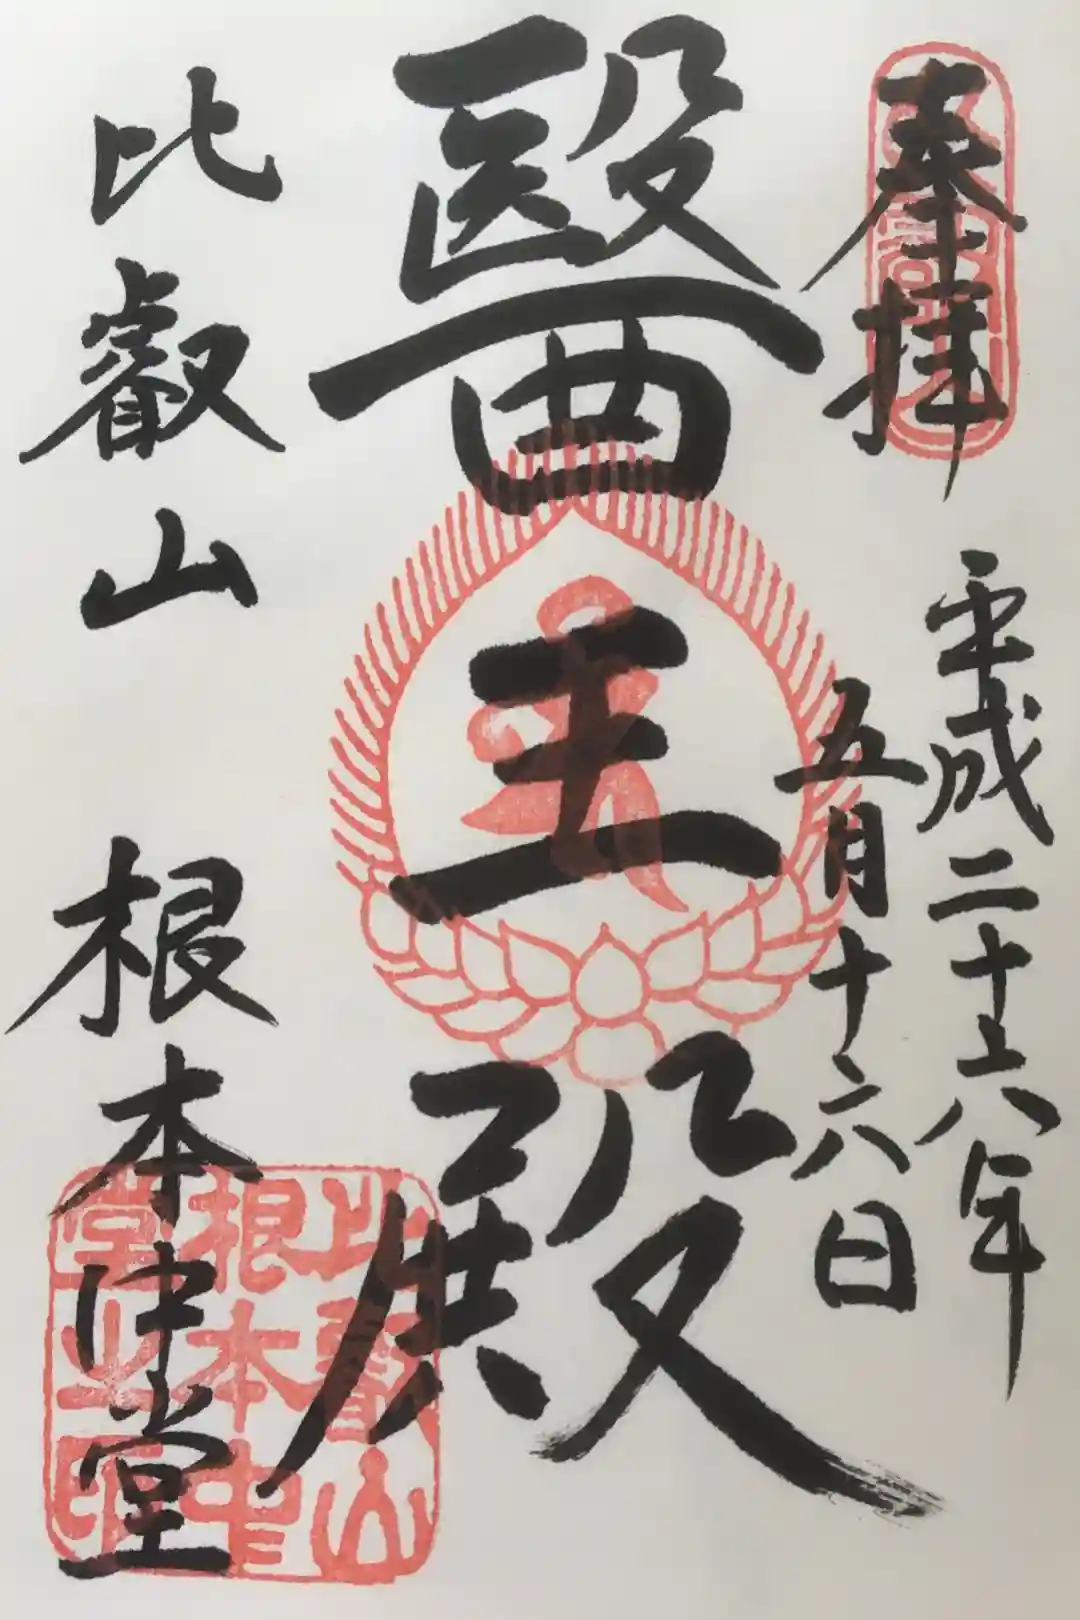 奉拝
平成二十六年
五月十六日
醫王殿
比叡山 根本中堂
比叡山
根本中
堂之印